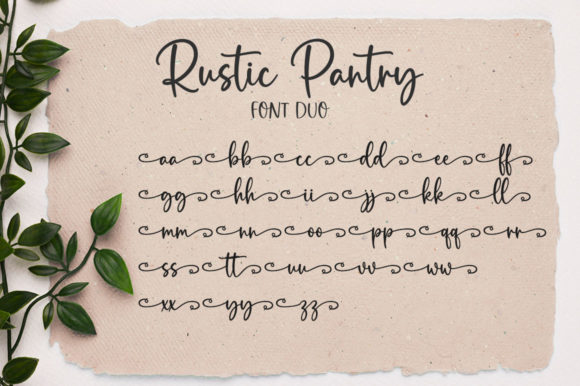 Rustic Pantry
FONT DUO
aa bb cc dd ee ff
gg hh ii jj kk ll
mm nn oo pp qq rr
ss tt uu vv ww
xx yy zz